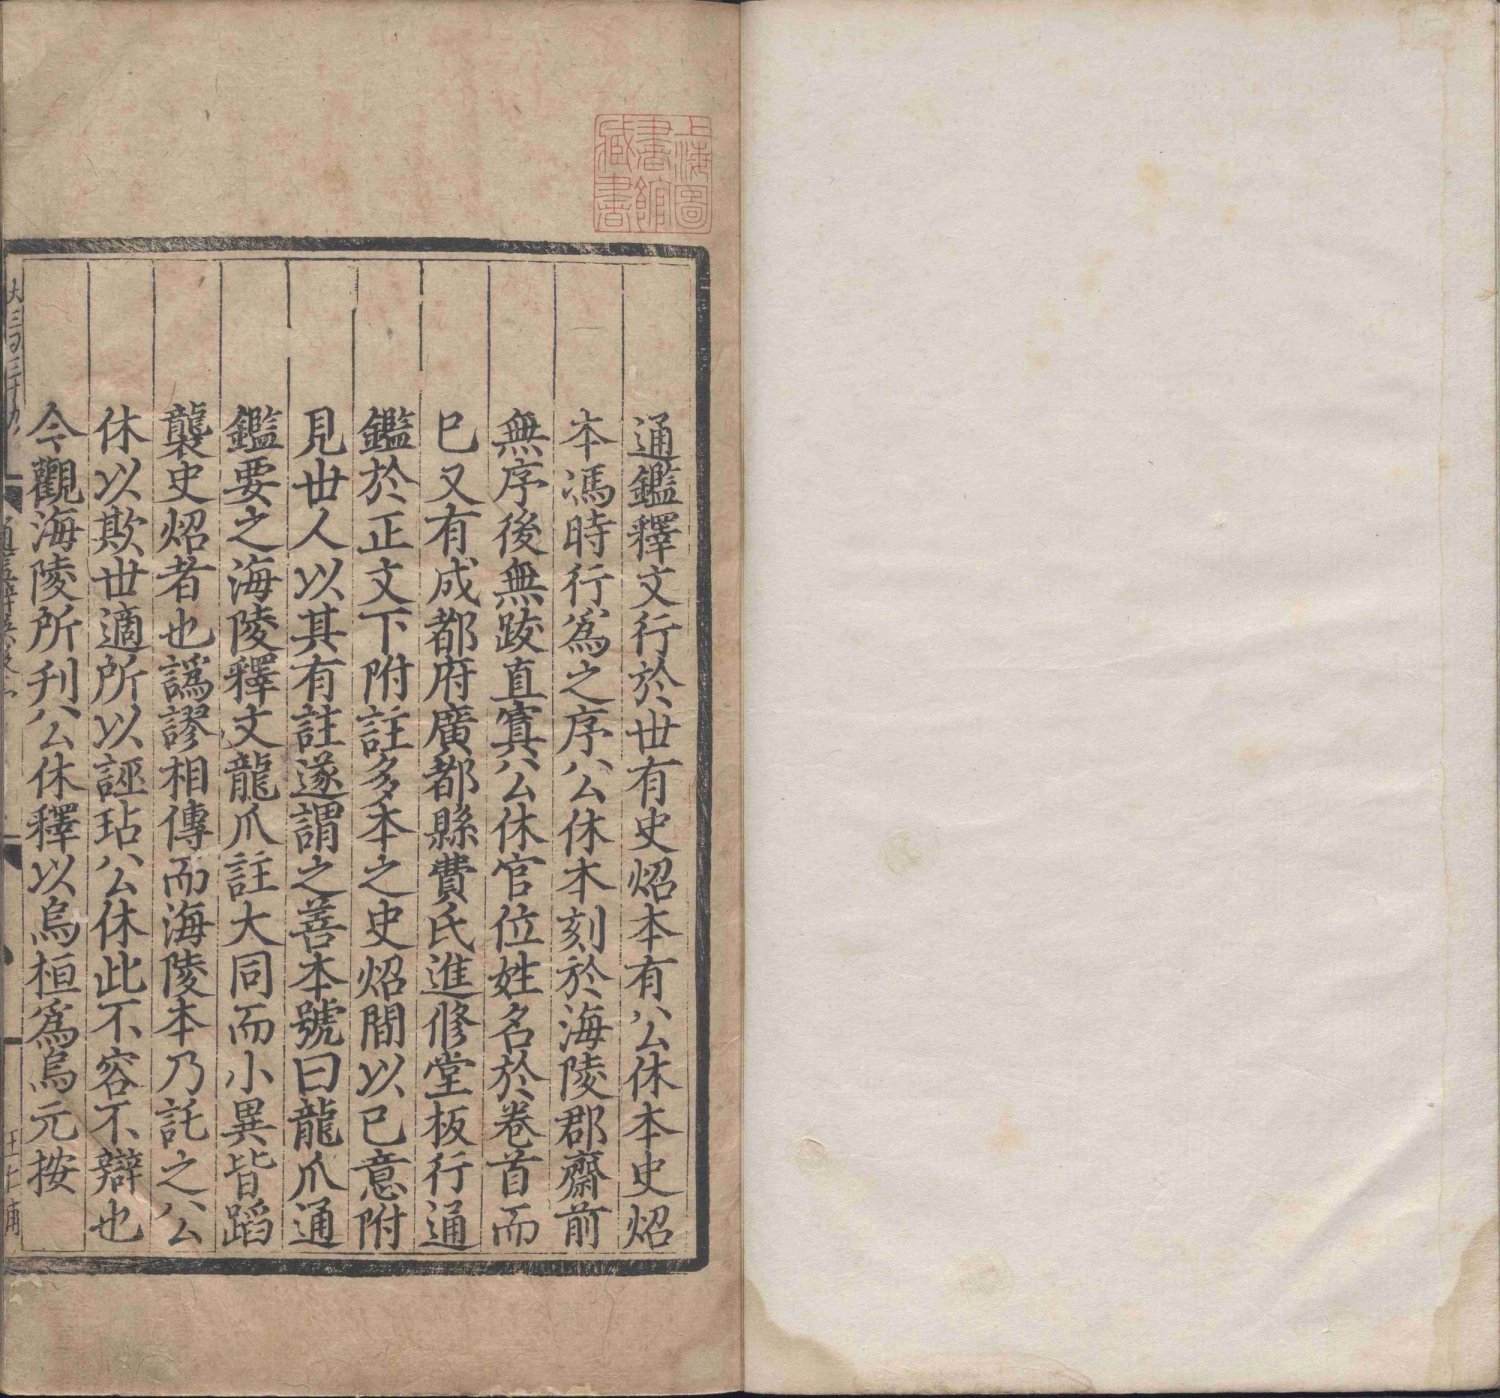 上海圖
書館
藏書
通鑑釋文行於世有史炤本有公休本史炤
本馮時行爲之序公休本刻於海陵郡齋前
無序後無跋直寘公休官位姓名於卷首而
已又有成都府廣都縣費氏進修堂板行通
鑑於正文下附註多本之史炤間以已意附
見世人以其有註遂謂之善本號曰龍爪通
鑑要之海陵釋文龍爪註大同而小異皆蹈
襲史炤者也譌謬相傳而海陵本乃託之公
休以欺世適所以誣玷公休此不容不辯也
今觀海陵所刊公休釋以烏桓爲烏元按